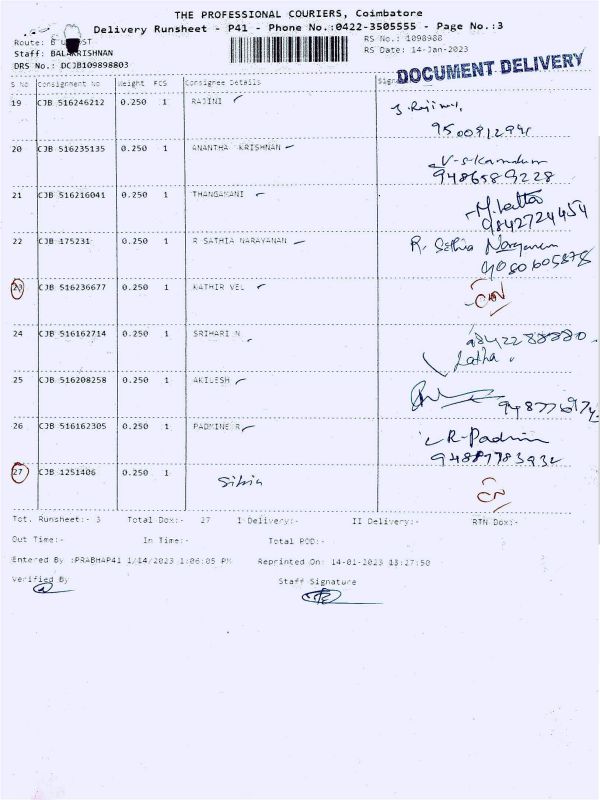 THE PROFESSIONAL COURIERS, Coimbatore
Delivery Runsheet - P41 - Phone No.:0422-3505555 - Page No.:3
Route: B
RS No.: 1098988
Staff: BALAKRISHNAN
RS Date: 14-Jan-2023
DRS No.: DCJB109898803
DOCUMENT DELIVERY
S No Consignment No Weight PCS Consignee Details
19 CJB 516246212 0.250 1 RAJINI
9500912941
20 CJB 516235135 0.250 1 ANANTHA KRISHNAN
9486589228
21 CJB 516216041 0.250 1 THANGAMANI
9842724454
22 CJB 175231 0.250 1 R SATHIA NARAYANAN R. Sathia Narayanan
23 CJB 516236677 0.250 1 KATHIR VEL
24 CJB 516162714 0.250 1 SRIHARI N
Latha.
25 CJB 516208258 0.250 1 AKILESH
26 CJB 516162305 0.250 1 PADMINE R
27 CJB 1251406 0.250 1
CN
Tot. Runsheet:- 3 Total Dox:- 27 I Delivery:- II Delivery:- RTN Dox:-
Out Time:- In Time:- Total POD:-
Entered By :PRABHAP41 1/14/2023 1:06:05 PM Reprinted On: 14-01-2023 13:27:50
Verified By Staff Signature